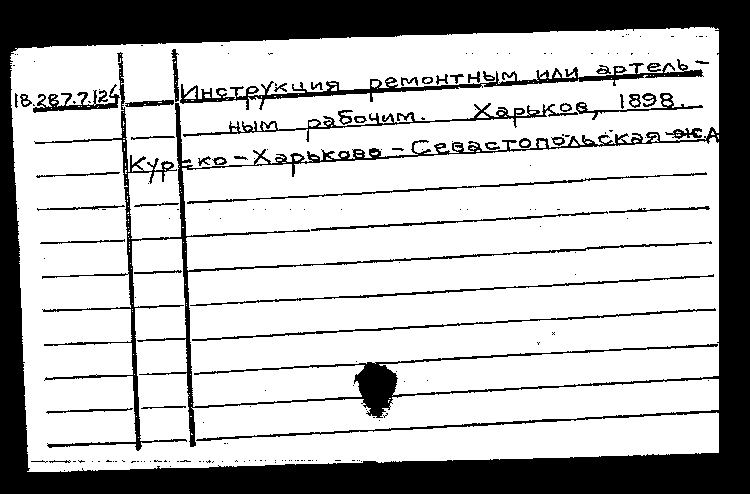 18.287.7.124 Инструкция ремонтным или артель-
ным рабочим. Харьков, 1898.
Курско-Харьково-Севастопольская ж.д